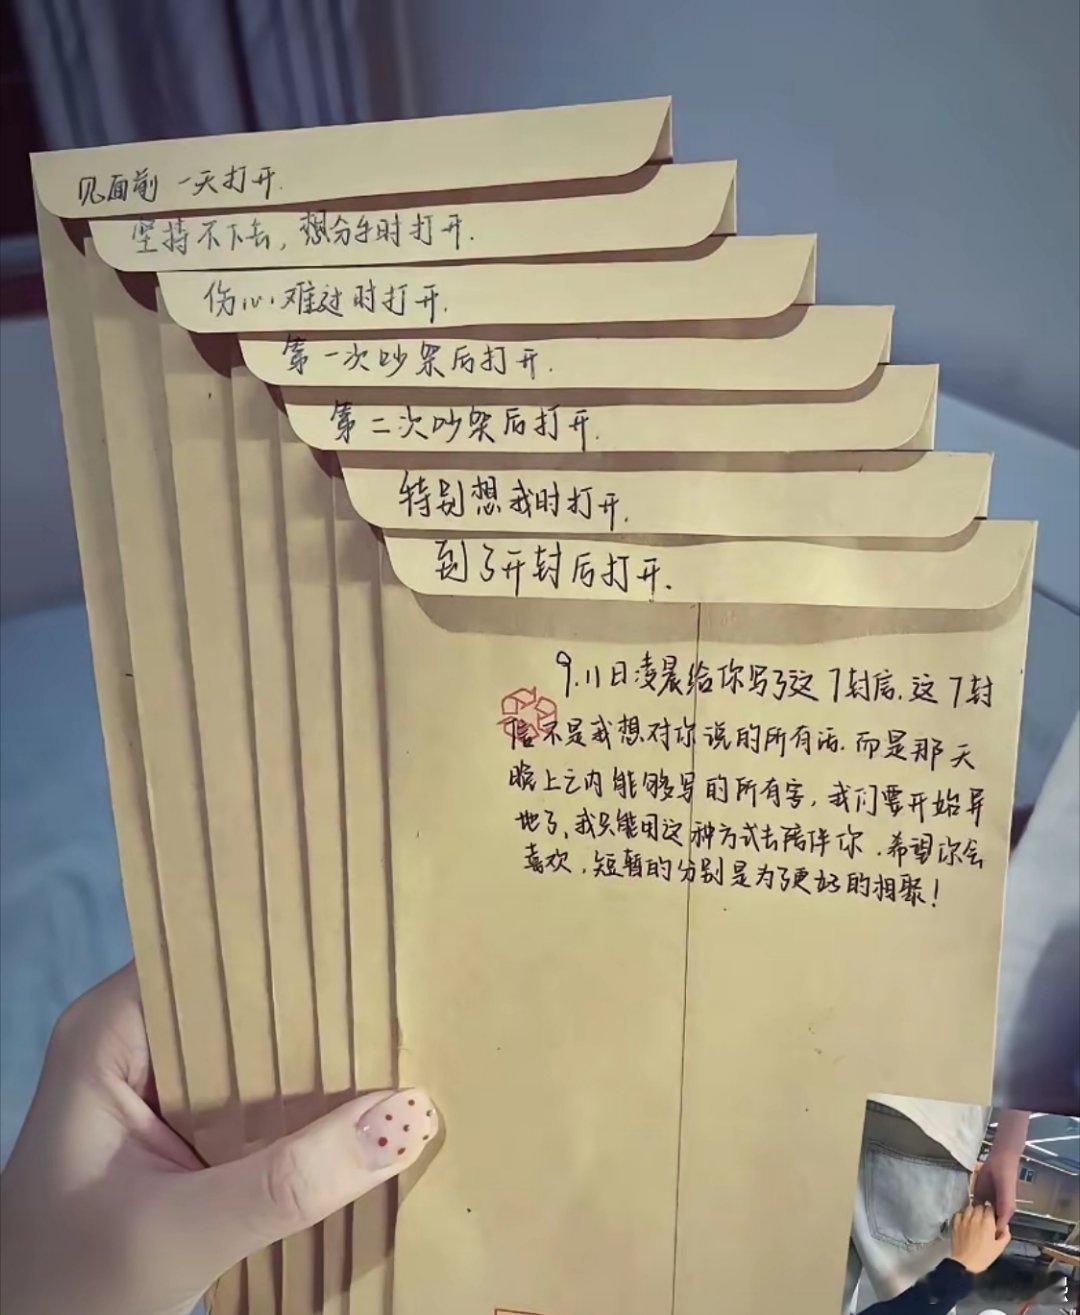 见面前一天打开.
坚持不下去,想分手时打开.
伤心难过时打开.
第一次吵架后打开.
第二次吵架后打开.
特别想我时打开.
到了开封后打开.
9.11日凌晨给你写了这7封信.这7封
信不是我想对你说的所有话.而是那天
晚上之内能够写的所有内容,我们要开始异
地了,我只能用这种方式去陪伴你.希望你会
喜欢.短暂的分别是为了更好的相聚!